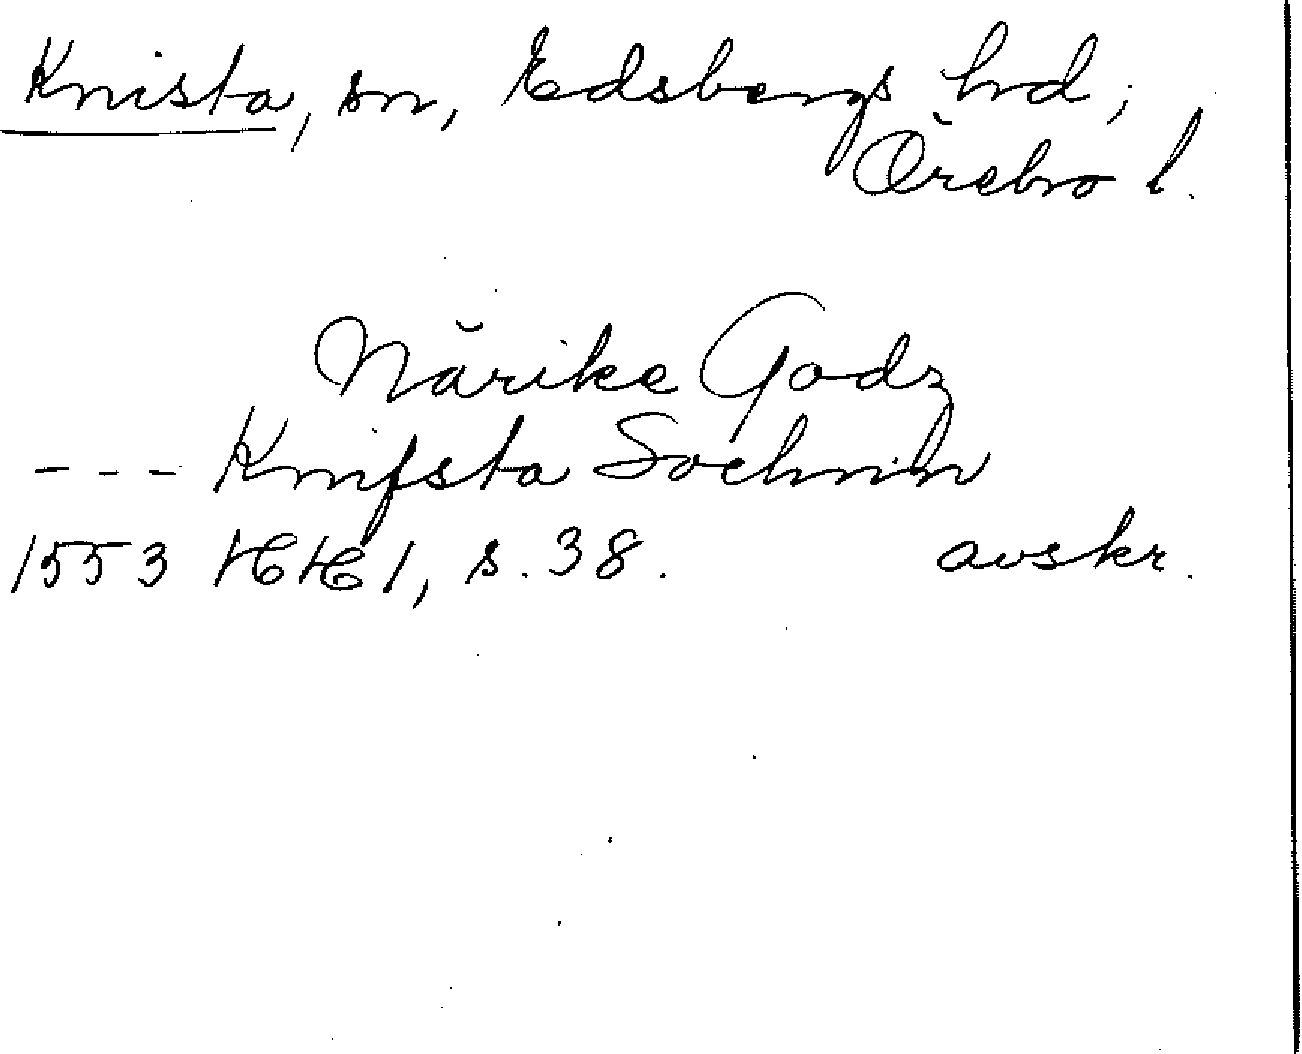 Knista, sn, Edsbergs hrd,
Örebro l.
Närike Godz
--- Knifsta Sochnn
1553 HH 1, s. 38. avskr.